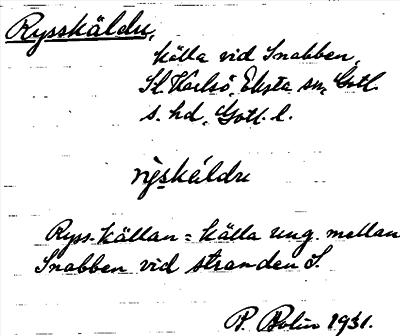 Rysskäldu,
källa vid Snabben,
St. Karlsö, Eksta sn, Gotl.
s. hd, Gotl. l.
ry̆skäldu
Ryss-källan = källa ung. mellan
Snabben vid stranden S.
P. Bolin 1931.